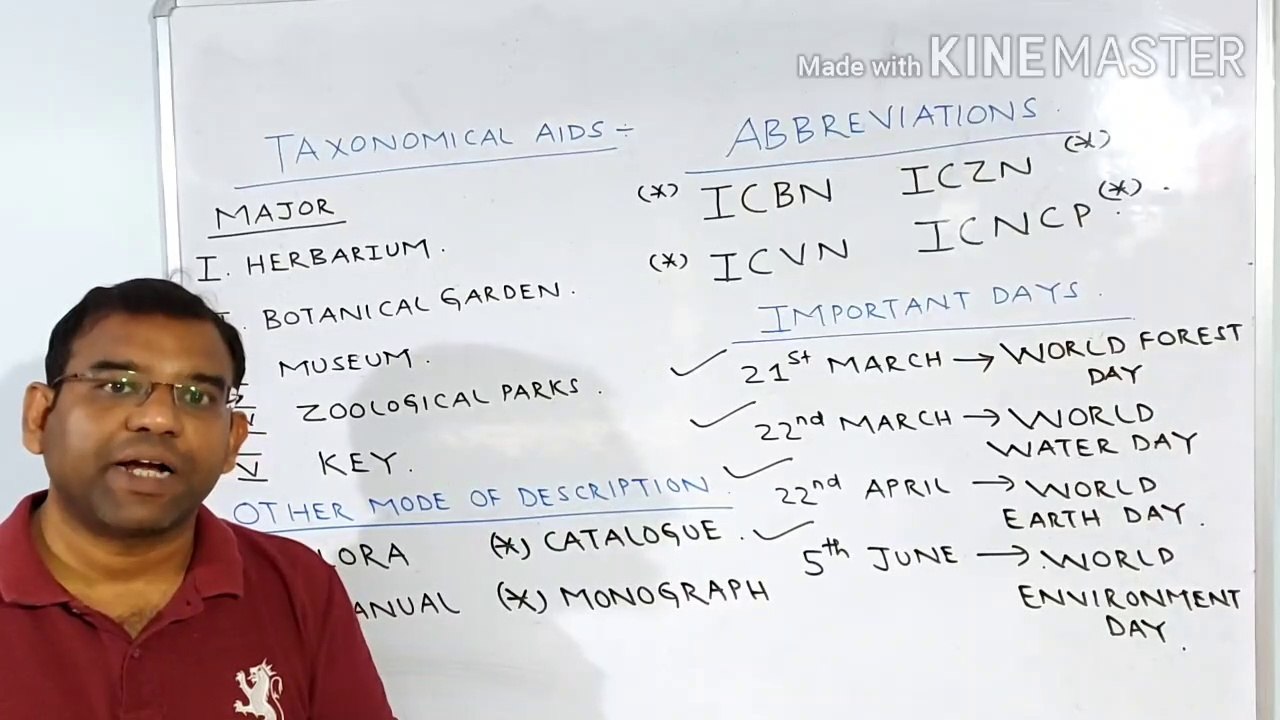 Made with KINEMASTER
TAXONOMICAL AIDS :-
MAJOR
I. HERBARIUM.
BOTANICAL GARDEN.
MUSEUM.
ZOOLOGICAL PARKS.
V KEY.
OTHER MODE OF DESCRIPTION
LORA (*) CATALOGUE.
ANUAL (*) MONOGRAPH
ABBREVIATIONS.
(*) ICBN ICZN (*)
(*) ICVN ICNCP (*).
IMPORTANT DAYS.
✓ 21st MARCH → WORLD FOREST
DAY
✓ 22nd MARCH → WORLD
WATER DAY
✓ 22nd APRIL → WORLD
EARTH DAY.
✓ 5th JUNE → WORLD
ENVIRONMENT
DAY.